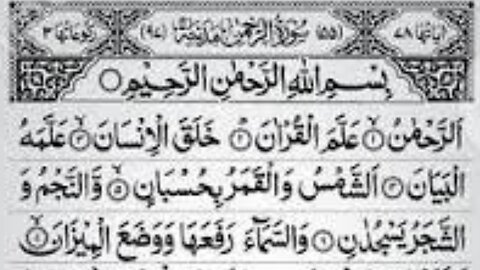 اٰیاتها ٧٨ (٥٥) سُوْرَةُ الرَّحْمٰنِ مَدَنِيَّةٌ (٩٧) رکوعاتها ٣
بِسْمِ اللّٰهِ الرَّحْمٰنِ الرَّحِيْمِ
اَلرَّحْمٰنُ ١ عَلَّمَ الْقُرْاٰنَ ٢ خَلَقَ الْاِنْسَانَ ٣ عَلَّمَهُ
الْبَيَانَ ٤ اَلشَّمْسُ وَالْقَمَرُ بِحُسْبَانٍ ٥ وَّالنَّجْمُ وَ
الشَّجَرُ يَسْجُدٰنِ ٦ وَالسَّمَآءَ رَفَعَهَا وَوَضَعَ الْمِيْزَانَ ٧